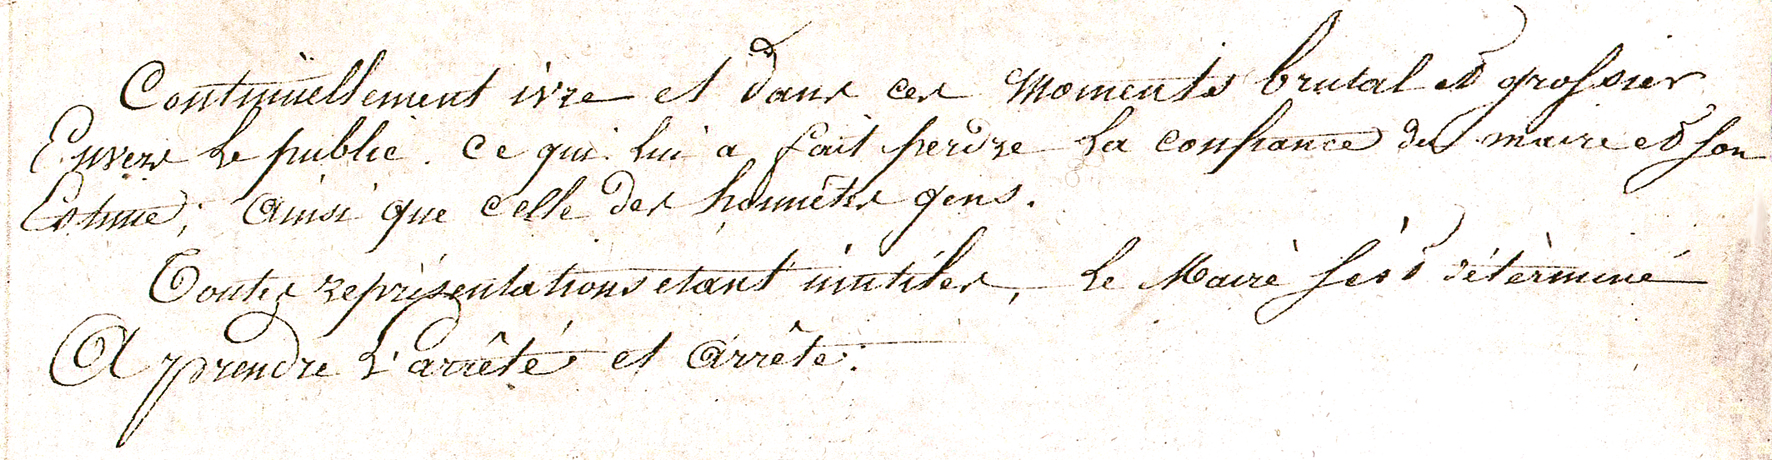 Continüellement ivre et dans ces Moments brutal et grossier
Envers le public. Ce qui lui a fait perdre la confiance du maire et son
Estime; Ainsi que celle des honnêtes gens.
Toutes représentations étant inutiles, le Mairè s'est détèrminé
A prendre L'arrêté et Arrête: